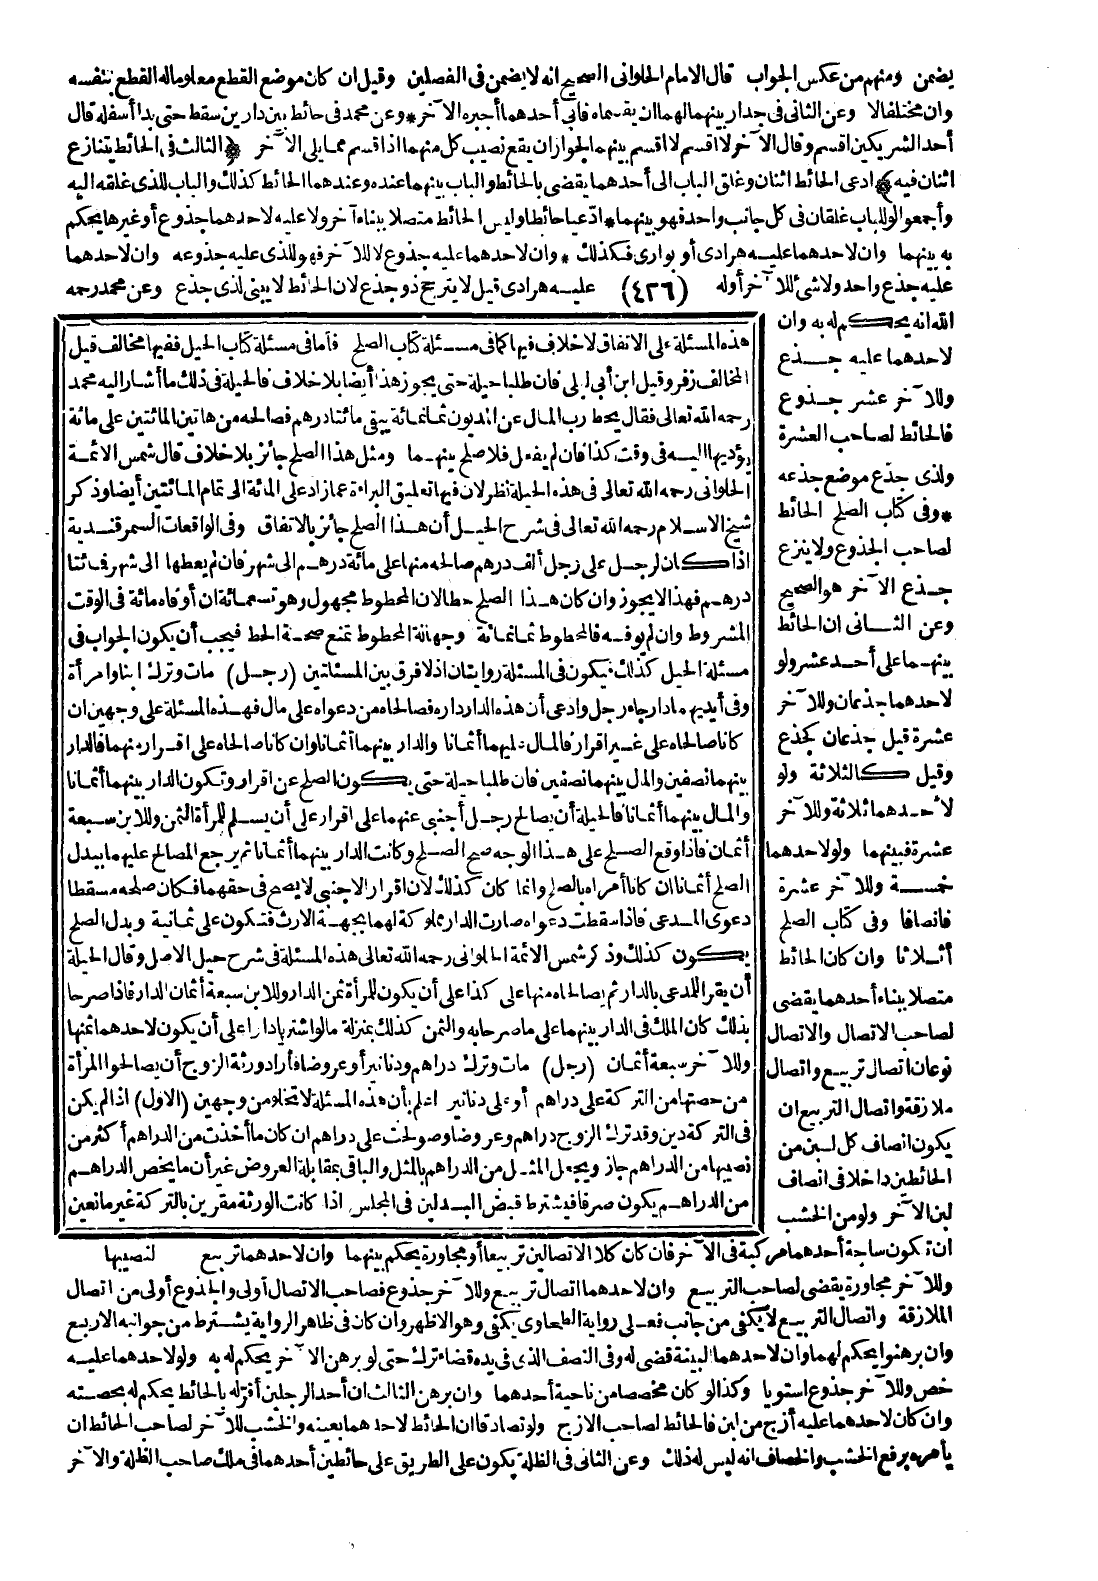 يضمن ومنهم من عكس الجواب قال الامام الحلوانى الصحيح انه لا يضمن فى الفصلين وقيل ان كان موضع القطع معلوما له القطع بنفسه
وان مختلفا لا وعن الثانى فى جدار بينهما لهما ان يقسماه فابى أحدهما أجبره الآخر * وعن محمد فى حائط بين دارين سقط حتى بدا أسفله قال
أحد الشريكين اقسم وقال الآخر لا اقسم لا اقسم بينهما لجواز ان يقع نصيب كل منهما اذا قسم مما يلى الآخر ﴿ الثالث فى الحائط يتنازع
اثنان فيه ﴾ ادعى الحائط اثنان وغلق الباب الى أحدهما يقضى بالحائط والباب بينهما عنده وعندهما الحائط كذلك والباب للذى غلقه اليه
وأجمعوا لو للباب غلقان فى كل جانب واحد فهو بينهما * ادّعيا حائطا وليس الحائط متصلا ببناء آخر ولا عليه لاحدهما جذوع أو غيرها يحكم
به بينهما وان لاحدهما عليه هرادى أو بوارى فكذلك * وان لاحدهما عليه جذوع لا للآخر فهو للذى عليه جذوعه وان لاحدهما
عليه جذع واحد ولا شئ للآخر أوله (٤٢٦) عليه هرادى قيل لا يترجح ذو جذع لان الحائط لا يبنى لذى جذع وعن محمد رحمه
الله انه يحكم له به وان
لاحدهما عليه جذع
وللآخر عشر جذوع
فالحائط لصاحب العشرة
ولذى جذع موضع جذعه
* وفى كتاب الصلح الحائط
لصاحب الجذوع ولا ينزع
جذع الآخر هو الصحيح
وعن الثانى ان الحائط
بينهما على أحد عشر ولو
لاحدهما جذعان وللآخر
عشرة قيل جذعان كجذع
وقيل كالثلاثة ولو
لأحدهما ثلاثة وللآخر
عشرة فبينهما ولو لاحدهما
خمسة وللآخر عشرة
فانصافا وفى كتاب الصلح
أثلاثا وان كان الحائط
متصلا ببناء أحدهما يقضى
لصاحب الاتصال والاتصال
نوعان اتصال تربيع واتصال
ملازقة واتصال التربيع ان
يكون انصاف كل لبن من
الحائطين داخلا فى انصاف
لبن الآخر ولو من الخشب
هذه المسئلة على الاتفاق لا خلاف فيها كما فى مسئلة كتاب الصلح فأما فى مسئلة كتاب الحيل ففيها مخالف قيل
المخالف زفر وقيل ابن أبى ليلى فان طلبا حيلة حتى يجوز هذا أيضا بلا خلاف فالحيلة فى ذلك ما أشار اليه محمد
رحمه الله تعالى فقال يحط رب المال عن المديون ثمانمائة يبقى مائتا درهم فصالحه من هاتين المائتين على مائة
يؤديها اليه فى وقت كذا فان لم يفعل فلا صلح بينهما ومثل هذا الصلح جائز بلا خلاف قال شمس الائمة
الحلوانى رحمه الله تعالى فى هذه الحيلة نظر لان فيها تعليق البراءة عما زاد على المائة الى تمام المائتين أيضا وذكر
شيخ الاسلام رحمه الله تعالى فى شرح الحيل أن هذا الصلح جائز بالاتفاق وفى الواقعات السمرقندية
اذا كان لرجل على رجل ألف درهم صالحه منها على مائة درهم الى شهر فان لم يعطها الى شهر فمائتا
درهم فهذا لا يجوز وان كان هذا الصلح حطا لان المحطوط مجهول وهو تسعمائة ان أوفاه مائة فى الوقت
المشروط وان لم يوفه فالمحطوط ثمانمائة وجهالة المحطوط تمنع صحة الحط فيجب أن يكون الجواب فى
مسئلة الحيل كذلك فيكون فى المسئلة روايتان اذ لا فرق بين المسئلتين (رجل) مات وترك ابنا وامرأة
وفى أيديهما دار جاء رجل وادعى أن هذه الدار داره فصالحاه من دعواه على مال فهذه المسئلة على وجهين ان
كانا صالحاه على غير اقرار فالمال عليهما أثمانا والدار بينهما أثمانا وان كانا صالحاه على اقرار منهما فالدار
بينهما نصفين والمال بينهما نصفين فان طلبا حيلة حتى يكون الصلح عن اقرار وتكون الدار بينهما أثمانا
والمال بينهما أثمانا فالحيلة أن يصالح رجل أجنبى عنهما على اقرار على أن يسلم للمرأة الثمن وللابن سبعة
أثمان فاذا وقع الصلح على هذا الوجه صح الصلح وكانت الدار بينهما أثمانا ثم يرجع المصالح عليهما ببدل
الصلح أثمانا ان كانا أمراه بالصلح وانما كان كذلك لان اقرار الاجنبى لا يصح فى حقهما فكان صلحه مسقطا
دعوى المدعى فاذا سقطت دعواه صارت الدار مملوكة لهما بجهة الارث فتكون على ثمانية وبدل الصلح
يكون كذلك وذكر شمس الائمة الحلوانى رحمه الله تعالى هذه المسئلة فى شرح حيل الاصل وقال الحيلة
أن يقر المدعى بالدار ثم يصالحاه منها على كذا على أن يكون للمرأة ثمن الدار وللابن سبعة أثمان الدار فاذا صرحا
بذلك كان الملك فى الدار بينهما على ما صرحا به والثمن كذلك بمنزلة ما لو اشتريا دارا على أن يكون لاحدهما ثمنها
وللآخر سبعة أثمان (رجل) مات وترك دراهم ودنانير أو عروضا فأراد ورثة الزوج أن يصالحوا المرأة
من حصتها من التركة على دراهم أو على دنانير اعلم بأن هذه المسئلة لا تخلو من وجهين (الاول) اذا لم يكن
فى التركة دين وقد ترك الزوج دراهم وعروضا وصولحت على دراهم ان كان ما أخذت من الدراهم أكثر من
نصيبها من الدراهم جاز ويجعل المثل من الدراهم بالمثل والباقى بمقابلة العروض غير أن ما يخص الدراهم
من الدراهم يكون صرفا فيشترط قبض البدلين فى المجلس اذا كانت الورثة مقرين بالتركة غير مانعين
ان تكون ساجة أحدهما مركبة فى الآخر فان كان كلا الاتصالين تربيعا أو مجاورة يحكم بينهما وان لاحدهما تربيع لنصيبها
وللآخر مجاورة يقضى لصاحب التربيع وان لاحدهما اتصال تربيع وللآخر جذوع فصاحب الاتصال أولى والجذوع أولى من اتصال
الملازقة واتصال التربيع لا يكفى من جانب فعلى رواية الطحاوى يكفى وهو الاظهر وان كان فى ظاهر الرواية يشترط من جوانبه الاربع
وان برهنوا يحكم لهما وان لاحدهما البينة قضى له وفى النصف الذى فى يده قضاء ترك حتى لو برهن الآخر يحكم له به ولو لاحدهما عليه
خص وللآخر جذوع استويا وكذا لو كان مخصصا من ناحية أحدهما وان برهن الثالث ان أحد الرجلين أقر له بالحائط يحكم له بحصته
وان كان لاحدهما عليه أزج من لبن فالحائط لصاحب الازج ولو تصادقا ان الحائط لاحدهما بعينه والخشب للآخر لصاحب الحائط ان
يأمره برفع الخشب والخصاف انه ليس له ذلك وعن الثانى فى الظلة يكون على الطريق على حائطين أحدهما فى ملك صاحب الظلة والآخر